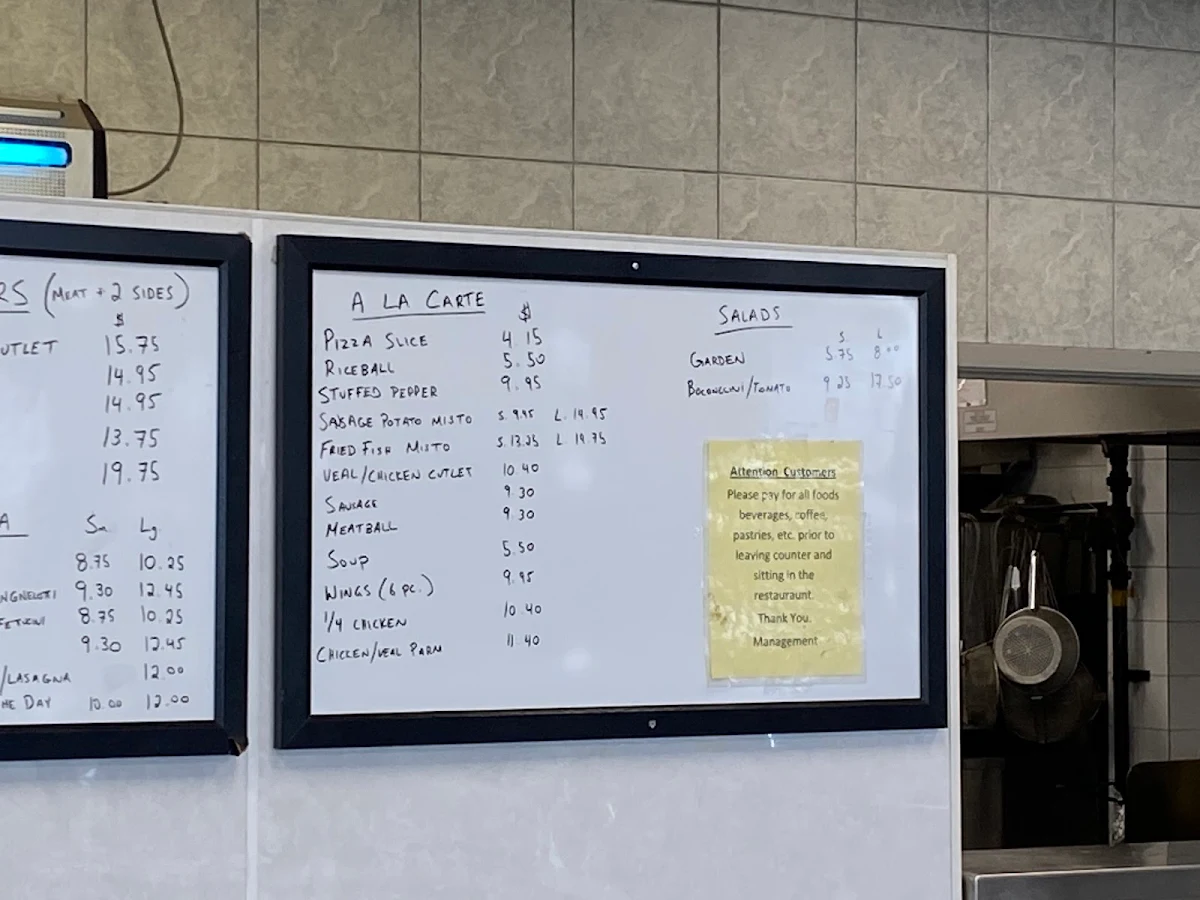 RS (MEAT + 2 SIDES)
$
UTLET 15.75
14.95
14.95
13.75
19.75
A Sm Lg.
8.75 10.25
9.30 12.45
8.75 10.25
9.30 12.45
/LASAGNA 12.00
HE DAY 10.00 12.00
A LA CARTE $
PIZZA SLICE 4.15
RICEBALL 5.50
STUFFED PEPPER 9.95
SAUSAGE POTATO MISTO S. 9.95 L. 14.95
FRIED FISH MISTO S. 13.25 L 19.75
VEAL/CHICKEN CUTLET 10.40
SAUSAGE 9.30
MEATBALL 9.30
SOUP 5.50
WINGS (6 PC.) 9.95
1/4 CHICKEN 10.40
CHICKEN/VEAL PARM 11.40
SALADS
S. L
GARDEN 5.75 8.00
/TOMATO 9.25 12.50
Attention Customers
Please pay for all foods
beverages, coffee,
pastries, etc. prior to
leaving counter and
sitting in the
restauraunt.
Thank You.
Management